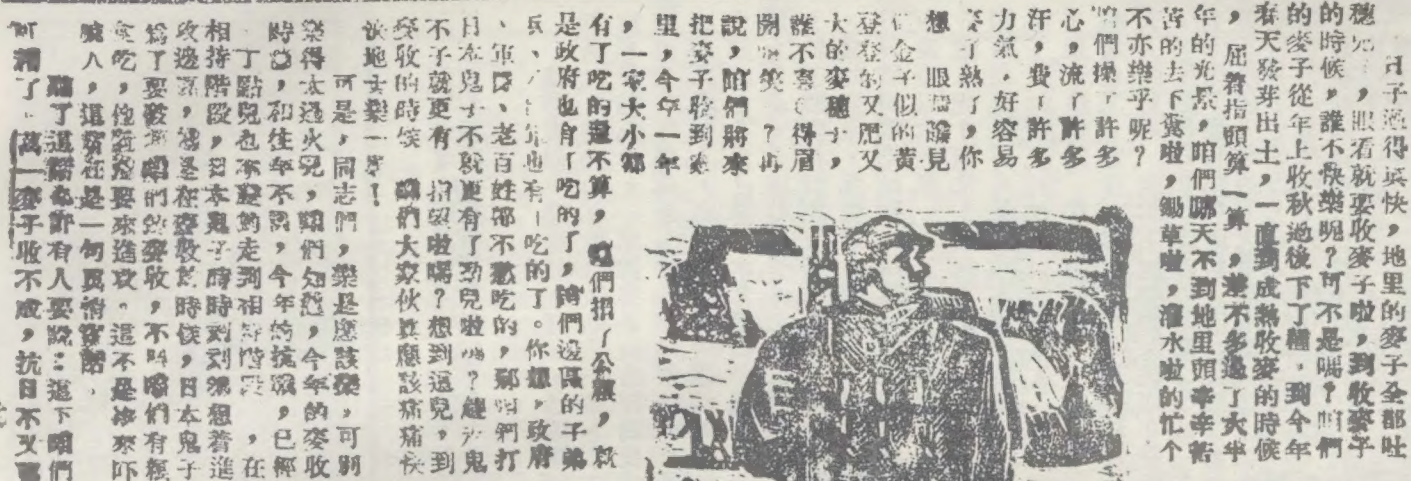 日子過得真快，地里的麥子全都吐
穗兒，眼看就要收麥子啦，到收麥子
的時候，誰不快樂呢？可不是嗎？咱們
的麥子從年上收秋過後下了種，到今年
春天發芽出土，一直到成熟收麥的時候
，屈着指頭算一算，差不多過了大半
年的光景，咱們哪天不到地里頭辛辛苦
苦的去下糞啦，鋤草啦，灌水啦的忙个
不亦樂乎呢？
咱們操了許多
心，流了許多
汗，費了許多
力氣，好容易
麥子熟了，你
想 眼看見
金子似的黃
登登的又肥又
大的麥穗子，
誰不喜得眉
開笑？再
說，咱們將來
把麥子收到家
里，今年一年
，一家大小都
有了吃的還不算，咱們招了公糧，就
是政府也有了吃的了，咱們邊區的子弟
兵、八路軍也有了吃的了。你想，政府
、軍隊、老百姓都不愁吃的，那咱們打
日本鬼子不就更有了勁兒啦嗎？趕走鬼
子就更有 指望啦嗎？想到這兒，到
麥收的時候 咱們大家伙真應該痛痛快
快地士樂一？！
可是，同志們，樂是應該樂，可別
樂得太過火兒，咱們知道，今年的麥收
時，和往年不同，今年的抗戰，已經
丁點兒也不錯的走到相持階段，在
相持階段，日本鬼子時時刻刻想着進
攻邊區，尤是在麥收的時候，日本鬼子
為了要破壞咱們的麥收，不叫咱們有糧
食吃，他要來進攻。這不是拿來吓
唬人，這實在是一句真情實話。
聽了這話也許有人要說：這下咱們
可糟了。萬一麥子收不成，抗日不又要